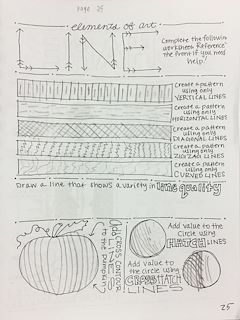 page 25
elements of art
LINE
Complete the following
worksheet. Reference
the front if you need
help!
Create a pattern
using only
VERTICAL LINES
Create a pattern
using only
HORIZONTAL LINES
Create a pattern
using only
DIAGONAL LINES
Create a pattern
using only
ZIG ZAG LINES
Create a pattern
using only
CURVED LINES
Draw a line that shows a variety in line quality
Add
CROSS CONTOUR
LINES
to the pumpkin
Add value to the
circle using
HATCH lines
Add value to
the circle using
CROSSHATCH
LINES
25